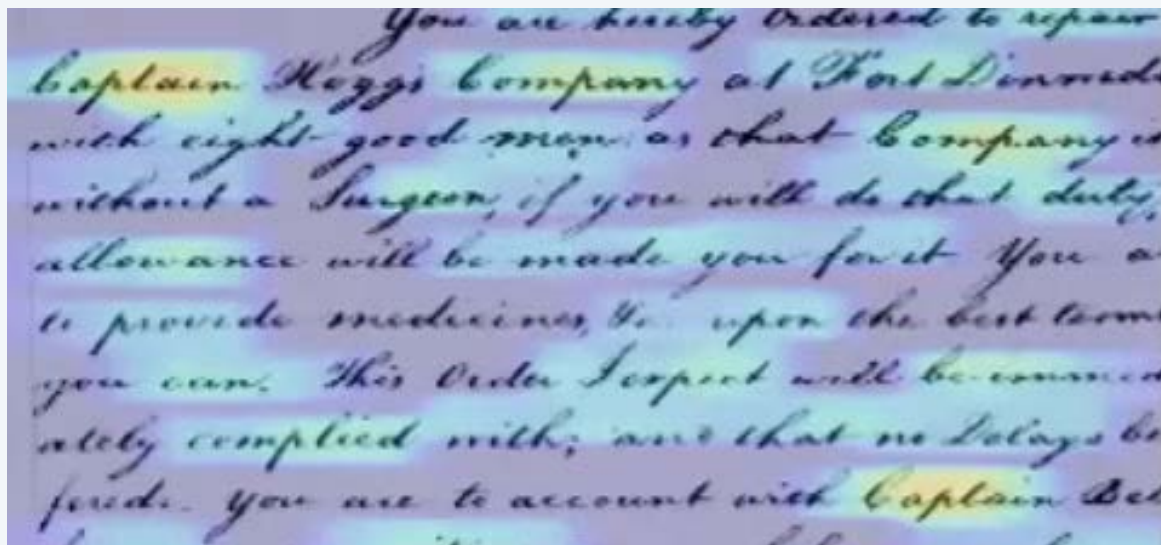 You are hereby Ordered to repair
Captain Hoggs Company at Fort Dinwidd
with eight good men: as that Company is
without a Surgeon, if you will do that duty,
allowance will be made you for it You a
to provide medicines, &c. upon the best terms
you can. This Order I expect will be immed
ately complied with; and that no Delays be
fered. You are to account with Captain Bel